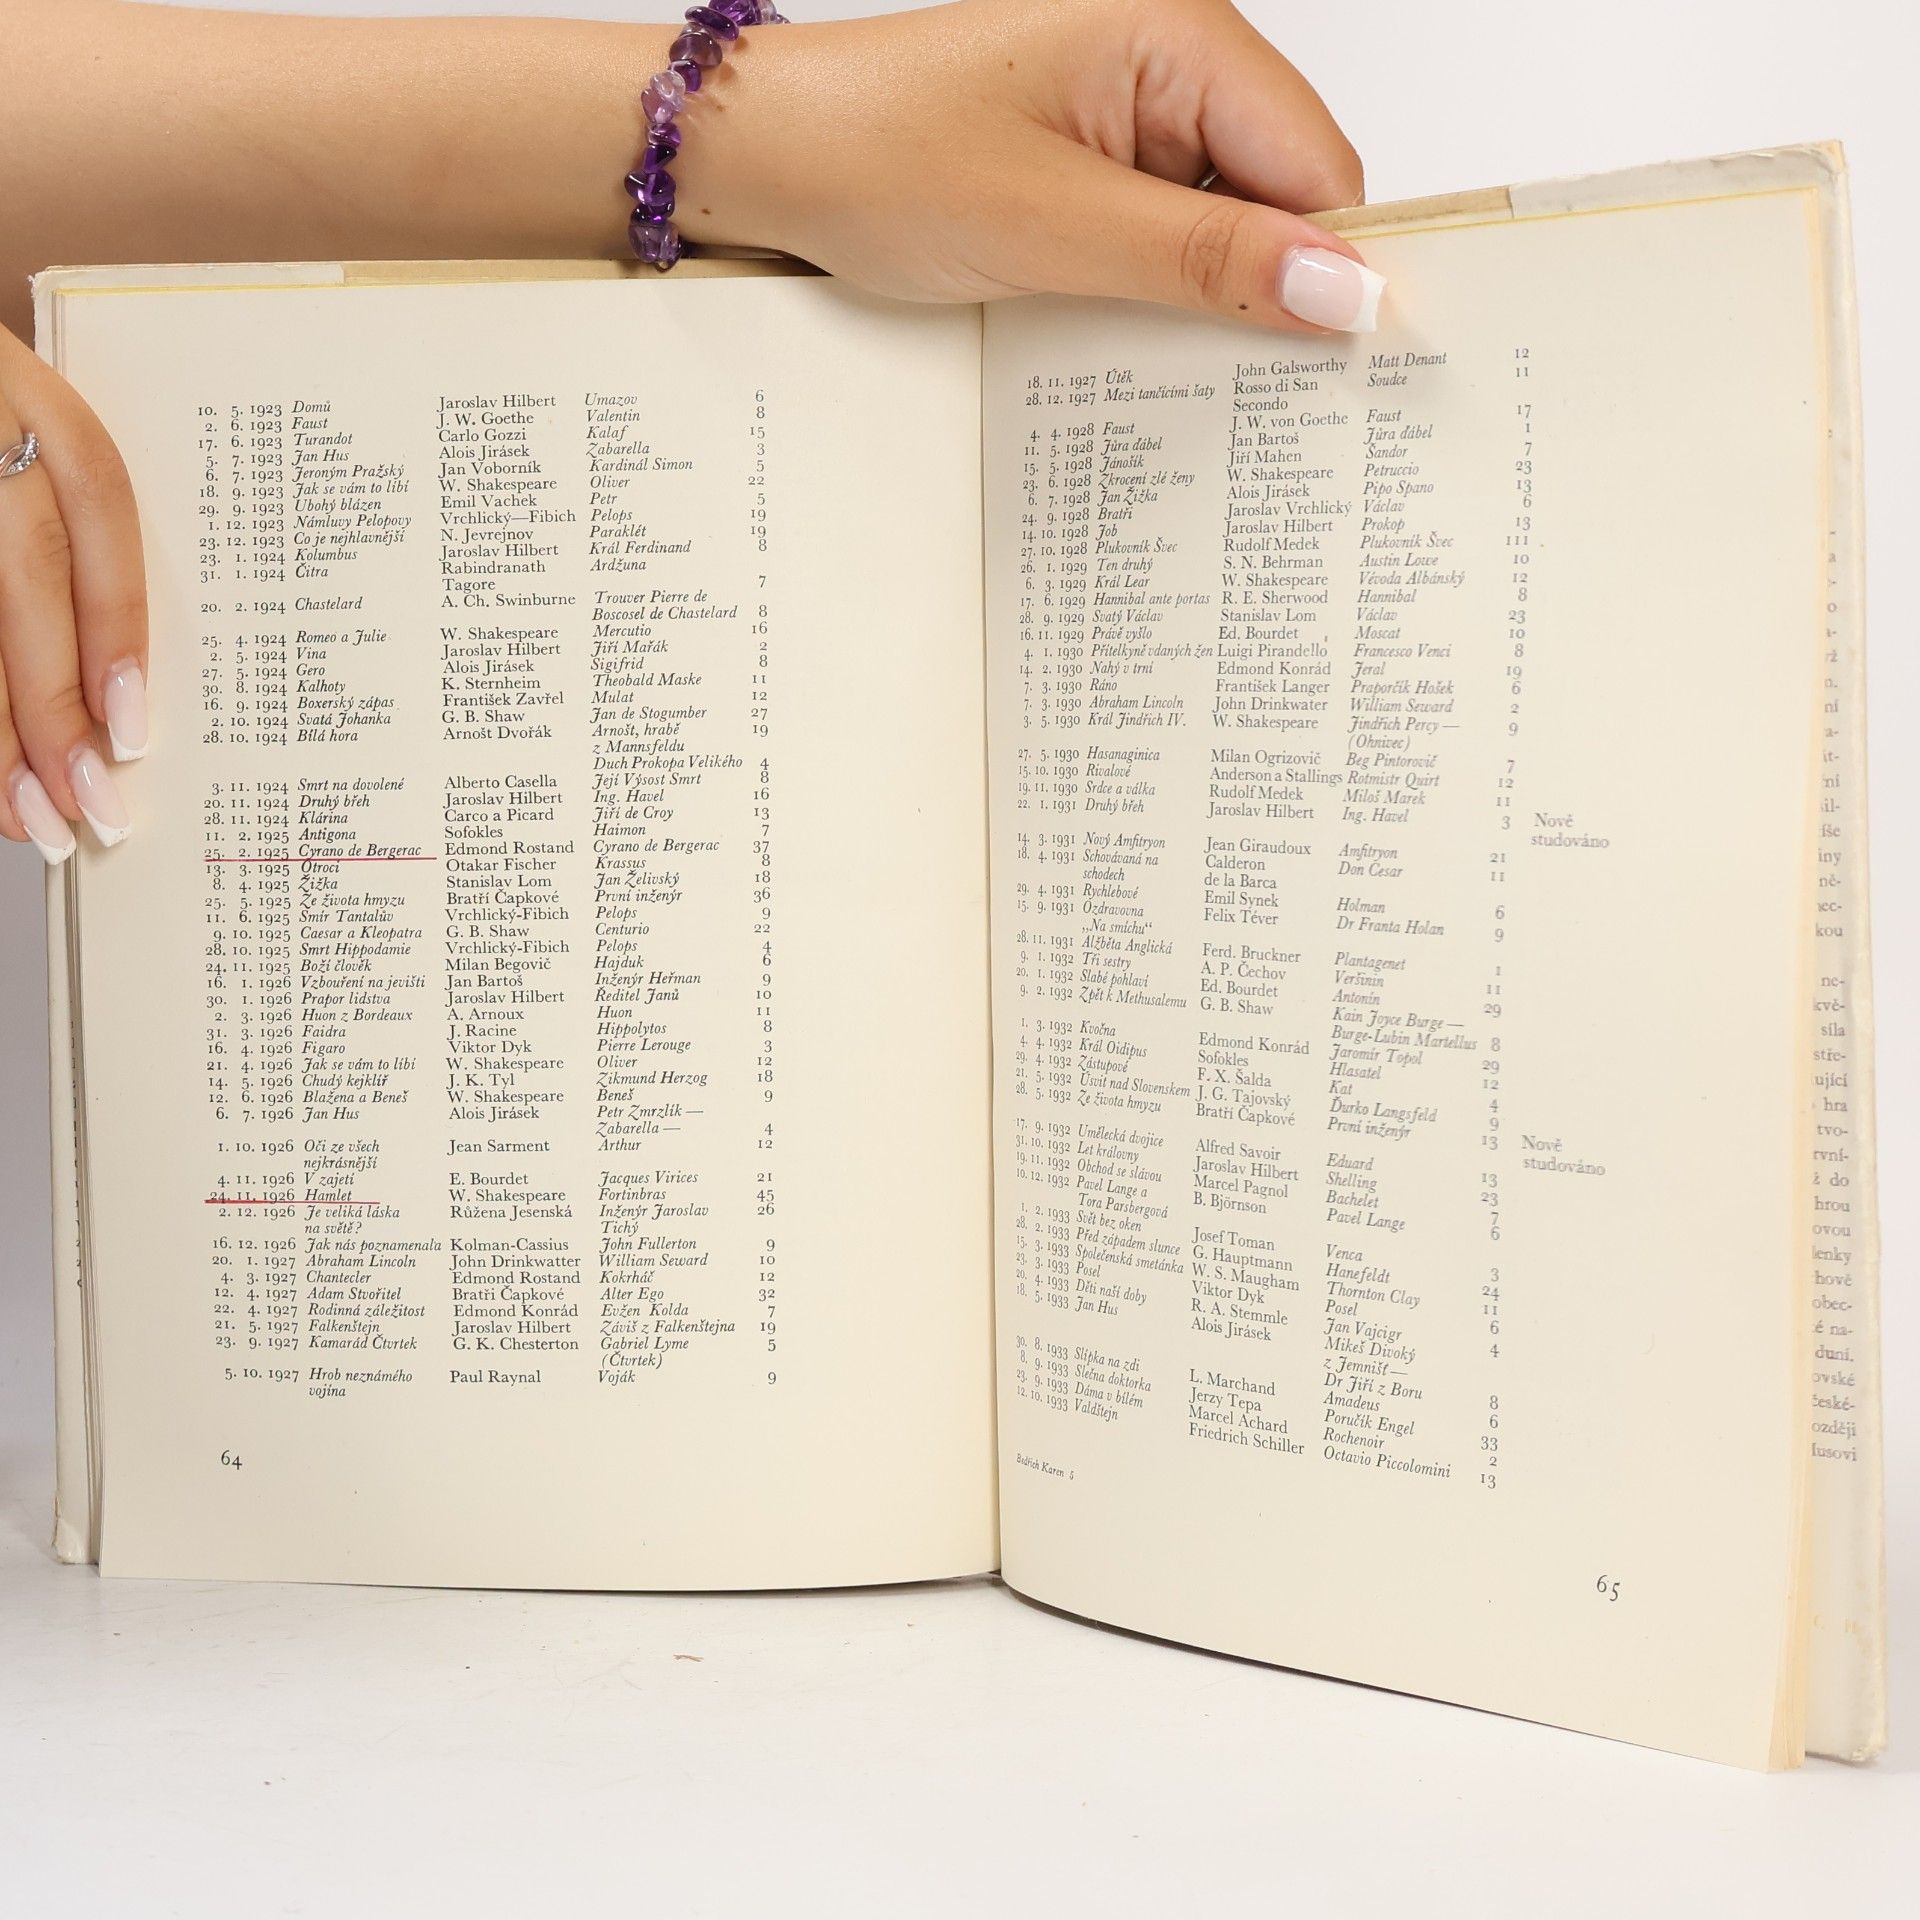 10. 5. 1923 Domů Jaroslav Hilbert Umazov 6
2. 6. 1923 Faust J. W. Goethe Valentin 8
17. 6. 1923 Turandot Carlo Gozzi Kalaf 15
5. 7. 1923 Jan Hus Alois Jirásek Zabarella 3
6. 7. 1923 Jeroným Pražský Jan Voborník Kardinál Simon 5
18. 9. 1923 Jak se vám to líbí W. Shakespeare Oliver 22
29. 9. 1923 Ubohý blázen Emil Vachek Petr 5
1. 12. 1923 Námluvy Pelopovy Vrchlický—Fibich Pelops 19
23. 12. 1923 Co je nejhlavnější N. Jevrejnov Paraklét 19
23. 1. 1924 Kolumbus Jaroslav Hilbert Král Ferdinand 8
31. 1. 1924 Čitra Rabindranath Ardžuna
Tagore 7
20. 2. 1924 Chastelard A. Ch. Swinburne Trouver Pierre de
Boscosel de Chastelard 8
25. 4. 1924 Romeo a Julie W. Shakespeare Mercutio 16
2. 5. 1924 Vina Jaroslav Hilbert Jiří Mařák 2
27. 5. 1924 Gero Alois Jirásek Sigifrid 8
30. 8. 1924 Kalhoty K. Sternheim Theobald Maske 11
16. 9. 1924 Boxerský zápas František Zavřel Mulat 12
2. 10. 1924 Svatá Johanka G. B. Shaw Jan de Stogumber 27
28. 10. 1924 Bílá hora Arnošt Dvořák Arnošt, hrabě 19
z Mannsfeldu
Duch Prokopa Velikého 4
3. 11. 1924 Smrt na dovolené Alberto Casella Její Výsost Smrt 8
20. 11. 1924 Druhý břeh Jaroslav Hilbert Ing. Havel 16
28. 11. 1924 Klárina Carco a Picard Jiří de Croy 13
11. 2. 1925 Antigona Sofokles Haimon 7
25. 2. 1925 Cyrano de Bergerac Edmond Rostand Cyrano de Bergerac 37
13. 3. 1925 Otroci Otakar Fischer Krassus 8
8. 4. 1925 Žižka Stanislav Lom Jan Želivský 18
25. 5. 1925 Ze života hmyzu Bratří Čapkové První inženýr 36
11. 6. 1925 Smír Tantalův Vrchlický-Fibich Pelops 9
9. 10. 1925 Caesar a Kleopatra G. B. Shaw Centurio 22
28. 10. 1925 Smrt Hippodamie Vrchlický-Fibich Pelops 4
24. 11. 1925 Boží člověk Milan Begovič Hajduk 6
16. 1. 1926 Vzbouření na jevišti Jan Bartoš Inženýr Heřman 9
30. 1. 1926 Prapor lidstva Jaroslav Hilbert Ředitel Janů 10
2. 3. 1926 Huon z Bordeaux A. Arnoux Huon 11
31. 3. 1926 Faidra J. Racine Hippolytos 8
16. 4. 1926 Figaro Viktor Dyk Pierre Lerouge 3
21. 4. 1926 Jak se vám to líbí W. Shakespeare Oliver 12
14. 5. 1926 Chudý kejklíř J. K. Tyl Zikmund Herzog 18
12. 6. 1926 Blažena a Beneš W. Shakespeare Beneš 9
6. 7. 1926 Jan Hus Alois Jirásek Petr Zmrzlík —
Zabarella — 4
1. 10. 1926 Oči ze všech Jean Sarment Arthur 12
nejkrásnější
4. 11. 1926 V zajetí E. Bourdet Jacques Virices 21
24. 11. 1926 Hamlet W. Shakespeare Fortinbras 45
2. 12. 1926 Je veliká láska Růžena Jesenská Inženýr Jaroslav 26
na světě? Tichý
16. 12. 1926 Jak nás poznamenala Kolman-Cassius John Fullerton 9
20. 1. 1927 Abraham Lincoln John Drinkwatter William Seward 10
4. 3. 1927 Chantecler Edmond Rostand Kokrháč 12
12. 4. 1927 Adam Stvořitel Bratří Čapkové Alter Ego 32
22. 4. 1927 Rodinná záležitost Edmond Konrád Evžen Kolda 7
21. 5. 1927 Falkenštejn Jaroslav Hilbert Záviš z Falkenštejna 19
23. 9. 1927 Kamarád Čtvrtek G. K. Chesterton Gabriel Lyme 5
(Čtvrtek)
5. 10. 1927 Hrob neznámého Paul Raynal Voják 9
vojína
64
18. 11. 1927 Útěk John Galsworthy Matt Denant 12
28. 12. 1927 Mezi tančícími šaty Rosso di San Soudce 11
Secondo
4. 4. 1928 Faust J. W. von Goethe Faust 17
11. 5. 1928 Jůra ďábel Jan Bartoš Jůra ďábel 1
15. 5. 1928 Jánošík Jiří Mahen Šandor 7
23. 6. 1928 Zkrocení zlé ženy W. Shakespeare Petruccio 23
6. 7. 1928 Jan Žižka Alois Jirásek Pipo Spano 13
24. 9. 1928 Bratři Jaroslav Vrchlický Václav 6
14. 10. 1928 Job Jaroslav Hilbert Prokop 13
27. 10. 1928 Plukovník Švec Rudolf Medek Plukovník Švec 111
26. 1. 1929 Ten druhý S. N. Behrman Austin Lowe 10
6. 3. 1929 Král Lear W. Shakespeare Vévoda Albánský 12
17. 6. 1929 Hannibal ante portas R. E. Sherwood Hannibal 8
28. 9. 1929 Svatý Václav Stanislav Lom Václav 23
16. 11. 1929 Právě vyšlo Ed. Bourdet Moscat 10
4. 1. 1930 Přítelkyně vdaných žen Luigi Pirandello Francesco Venci 8
14. 2. 1930 Nahý v trní Edmond Konrád Jeral 19
7. 3. 1930 Ráno František Langer Praporčík Hošek 6
7. 3. 1930 Abraham Lincoln John Drinkwater William Seward 2
3. 5. 1930 Král Jindřich IV. W. Shakespeare Jindřich Percy — 9
(Ohnivec)
27. 5. 1930 Hasanaginica Milan Ogrizovič Beg Pintorovič 7
15. 10. 1930 Rivalové Anderson a Stallings Rotmistr Quirt 12
19. 11. 1930 Srdce a válka Rudolf Medek Miloš Marek 11
22. 1. 1931 Druhý břeh Jaroslav Hilbert Ing. Havel 3 Nově
studováno
14. 3. 1931 Nový Amfitryon Jean Giraudoux Amfitryon 21
18. 4. 1931 Schovávaná na Calderon Don César 11
schodech de la Barca
29. 4. 1931 Rychlebové Emil Synek Holman 6
15. 9. 1931 Ozdravovna Felix Téver Dr Franta Holan 9
„Na smíchu“
28. 11. 1931 Alžběta Anglická Ferd. Bruckner Plantagenet 1
9. 1. 1932 Tři sestry A. P. Čechov Veršinin 11
20. 1. 1932 Slabé pohlaví Ed. Bourdet Antonín 29
9. 2. 1932 Zpět k Methusalemu G. B. Shaw Kain Joyce Burge —
Burge-Lubin Martellus 8
1. 3. 1932 Kvočna Edmond Konrád Jaromír Topol 29
4. 4. 1932 Král Oidipus Sofokles Hlasatel 12
29. 4. 1932 Zástupové F. X. Šalda Kat 4
21. 5. 1932 Úsvit nad Slovenskem J. G. Tajovský Ďurko Langsfeld 9
28. 5. 1932 Ze života hmyzu Bratří Čapkové První inženýr 13 Nově
studováno
17. 9. 1932 Umělecká dvojice Alfred Savoir Eduard 13
31. 10. 1932 Let královny Jaroslav Hilbert Shelling 23
19. 11. 1932 Obchod se slávou Marcel Pagnol Bachelet 7
10. 12. 1932 Pavel Lange a B. Björnson Pavel Lange 6
Tora Parsbergová
1. 2. 1933 Svět bez oken Josef Toman Venca 3
28. 2. 1933 Před západem slunce G. Hauptmann Hanefeldt 24
15. 3. 1933 Společenská smetánka W. S. Maugham Thornton Clay 11
23. 3. 1933 Posel Viktor Dyk Posel 6
20. 4. 1933 Děti naší doby R. A. Stemmle Jan Vajcigr 4
18. 5. 1933 Jan Hus Alois Jirásek Mikeš Divoký
z Jemnišť —
Dr Jiří z Boru
30. 8. 1933 Slípka na zdi L. Marchand Amadeus 8
8. 9. 1933 Slečna doktorka Jerzy Tepa Poručík Engel 6
23. 9. 1933 Dáma v bílém Marcel Achard Rochenoir 33
2
12. 10. 1933 Valdštejn Friedrich Schiller Octavio Piccolomini 13
Bedřich Karen 5
65